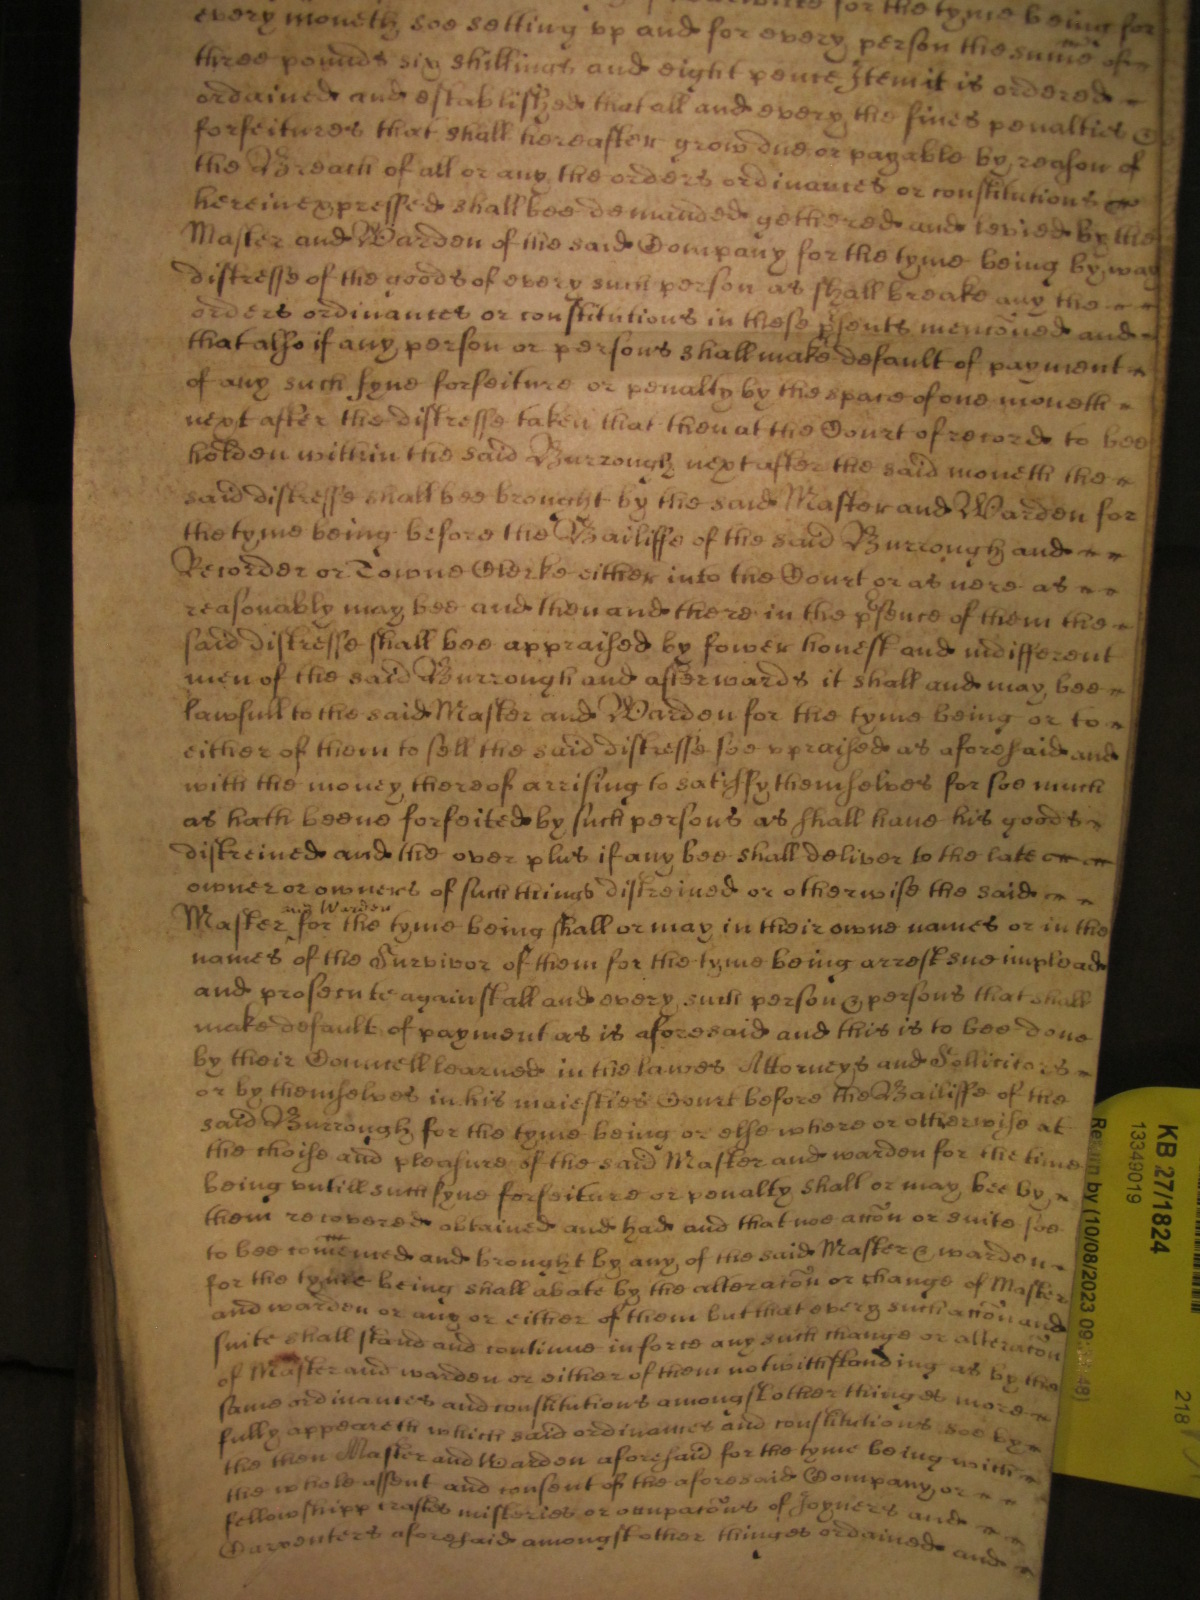 for the tyme being for
every moneth soe setting vp and for every person the summe of
three pounds six shillings and eight pence Item it is ordered
ordained and established that all and every the fines penalties &
forfeitures that shall hereafter grow due or payable by reason of
the Breach of all or any the orders ordinances or constitutions
herein expressed shall bee demanded gethered and levied by the
Master and Warden of the said Company for the tyme being by way
distresse of the goods of every such person as shall breake any the
orders ordinances or constitutions in these psents menconed and
that also if any person or persons shall make default of payment
of any such fyne forfeiture or penalty by the space of one moneth
next after the distresse taken that then at the Court of record to bee
holden within the said Burrough next after the said moneth the
said distresse shall bee brought by the said Master and Warden for
the tyme being before the Bailiffe of the said Burrough and
Recorder or Towne Clerke either into the Court or as nere as
reasonably may bee and then and there in the psence of them the
said distresse shall bee appraised by fower honest and indifferent
men of the said Burrough and afterwards it shall and may bee
lawfull to the said Master and Warden for the tyme being or to
either of them to sell the said distresse soe apraised as aforesaid and
with the money thereof arrising to satisfy themselves for soe much
as hath beene forfeited by such persons as shall haue his goods
distreined and the over plus if any bee shall deliver to the late
owner or owners of such things distreined or otherwise the said
Master and Warden for the tyme being shall or may in their owne names or in the
names of the Survivor of them for the tyme being arrest sue implead
and prosecute against all and every such person & persons that shall
make default of payment as is aforesaid and this is to bee done
by their Councell learned in the lawes Attorneys and Sollicitors
or by themselves in his maiesties Court before the Bailiffe of the
said Burrough for the tyme being or else where or otherwise at
the choise and pleasure of the said Master and warden for the time
being vntill such fyne forfeiture or penalty shall or may bee by
them recovered obtained and had and that noe accon or suite soe
to bee comenced and brought by any of the said Master & warden
for the tyme being shall abate by the alteracon or change of Master
and warden or any or either of them but that every such accon and
suite shall stand and continue in force any such change or alteracon
of Master and warden or either of them notwithstanding as by the
same ordinances and constitutions amongst other thinges more
fully appeareth which said ordinances and constitutions soe by
the then Master and Warden aforesaid for the tyme being with
the whole assent and consent of the aforesaid Company or
fellowshipp craftes misteries or occupacons of Joyners and
Carpenters aforesaid amongst other thinges ordained and
KB 27/1824
13349019
by (10/08/2023 09:
218